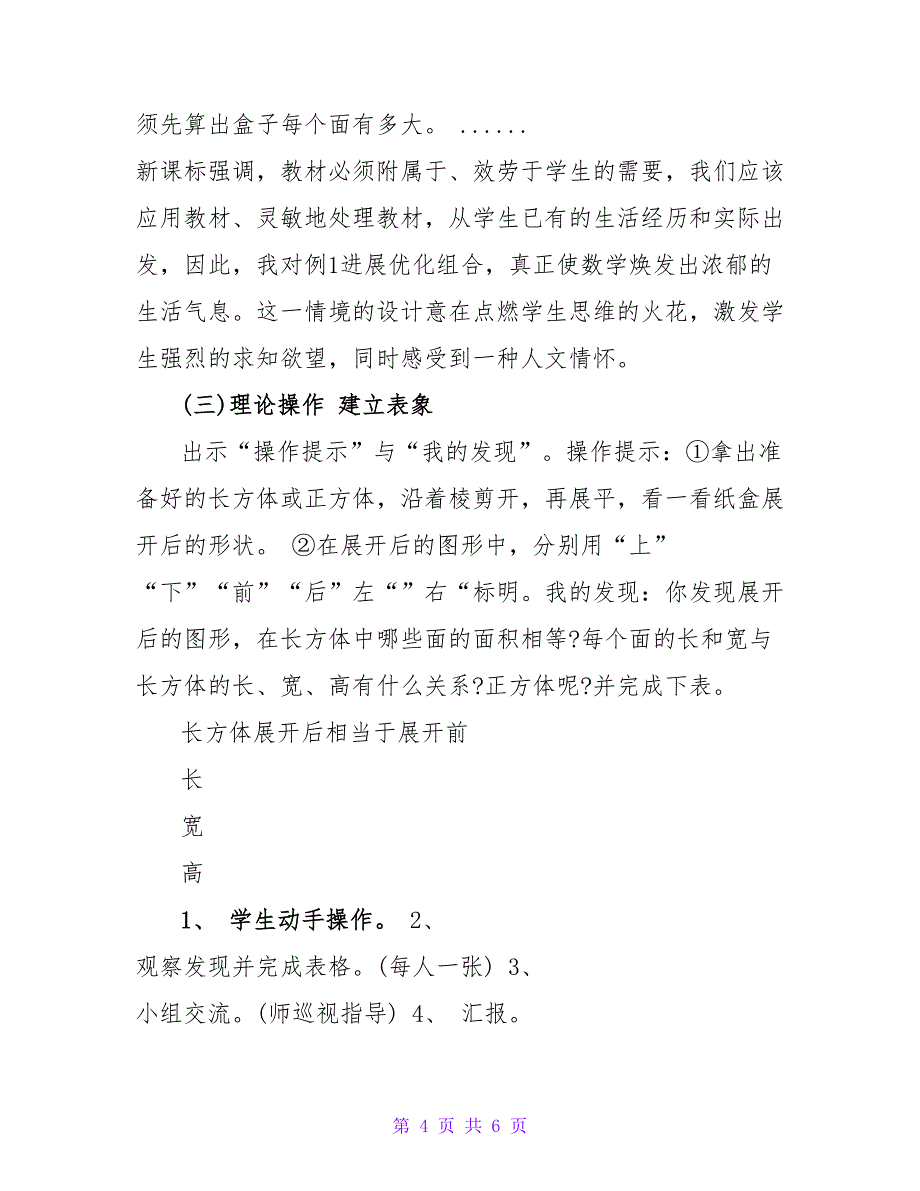 须先算出盒子每个面有多大。 ......
新课标强调，教材必须附属于、效劳于学生的需要，我们应该
应用教材、灵敏地处理教材，从学生已有的生活经历和实际出
发，因此，我对例1进展优化组合，真正使数学焕发出浓郁的
生活气息。这一情境的设计意在点燃学生思维的火花，激发学
生强烈的求知欲望，同时感受到一种人文情怀。
(三)理论操作 建立表象
出示“操作提示”与“我的发现”。操作提示：①拿出准
备好的长方体或正方体，沿着棱剪开，再展平，看一看纸盒展
开后的形状。 ②在展开后的图形中，分别用“上”
“下”“前”“后”左“”右“标明。我的发现：你发现展开
后的图形，在长方体中哪些面的面积相等?每个面的长和宽与
长方体的长、宽、高有什么关系?正方体呢?并完成下表。
长方体展开后相当于展开前
长
宽
高
1、 学生动手操作。 2、
观察发现并完成表格。(每人一张) 3、
小组交流。(师巡视指导) 4、 汇报。
第 4 页 共 6 页